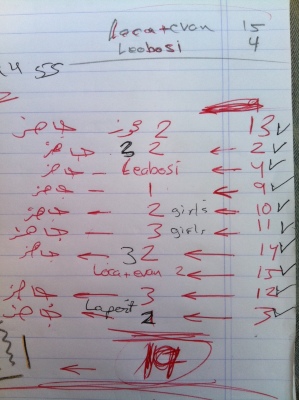 Loca+evan 15
Leobosi 4
13 ← 2 جوز جاهز
2 ← 2 3 جاهز
4 ← Leobosi – جاهز
9 ← 1 – جاهز
10 ← 2 girls ← جاهز
11 ← 3 girls ← جاهز
14 ← 32 ← جاهز
15 ← Loca+evan 2
12 ← 3 ← جاهز
3 ← 2 جاهز
19
←